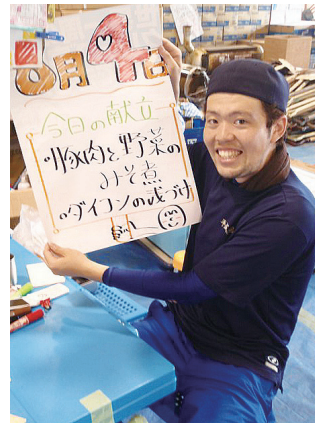 6月4日
今日の献立
・豚肉と野菜の
みそ煮
・ダイコンの浅づけ